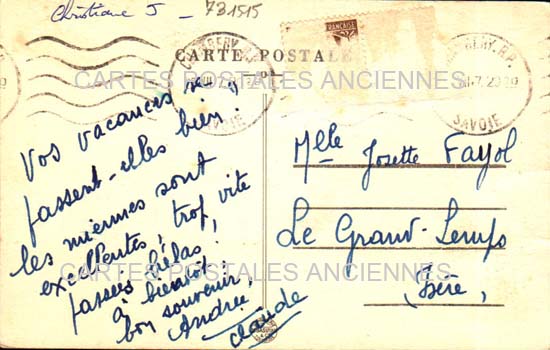 Christiane J - 731515
CARTE POSTALE
FRANÇAISE
CHAMBERY R.P.
SAVOIE
CARTES POSTALES ANCIENNES
Vos vacances se
passent-elles bien?
les miennes sont
excellentes, trop vite
passées hélas!
à bientôt!
bon souvenir,
Andrée
Claude
Mlle Josette Fayol
Le Grand-Lemps
Isère,
CARTES POSTALES ANCIENNES